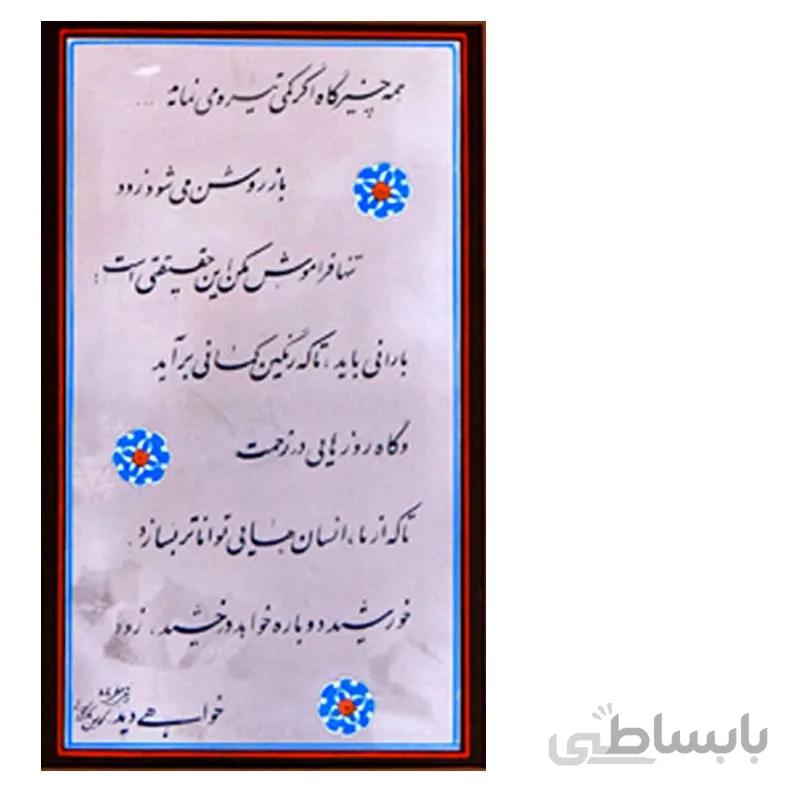 همه چیز گاه اگر کمی تیره می نماید ...
باز روشن می شود زود
تنها فراموش مکن این حقیقتی است :
بارانی باید ، تا که رنگین کمانی برآید
و گاه روزهایی در زحمت
تا که از ما ، انسان هایی تواناتر بسازد .
خورشید دوباره خواهد درخشید ، زود
خواهی دید .
بابساطی